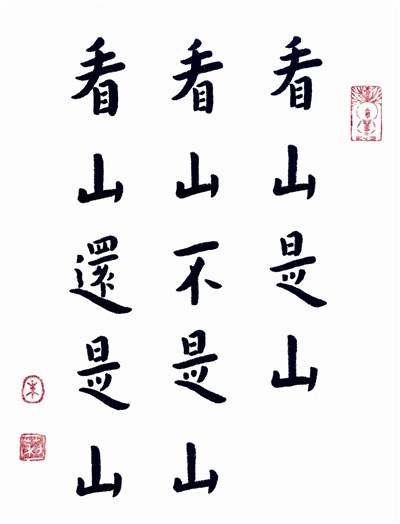 看山是山
看山不是山
看山還是山